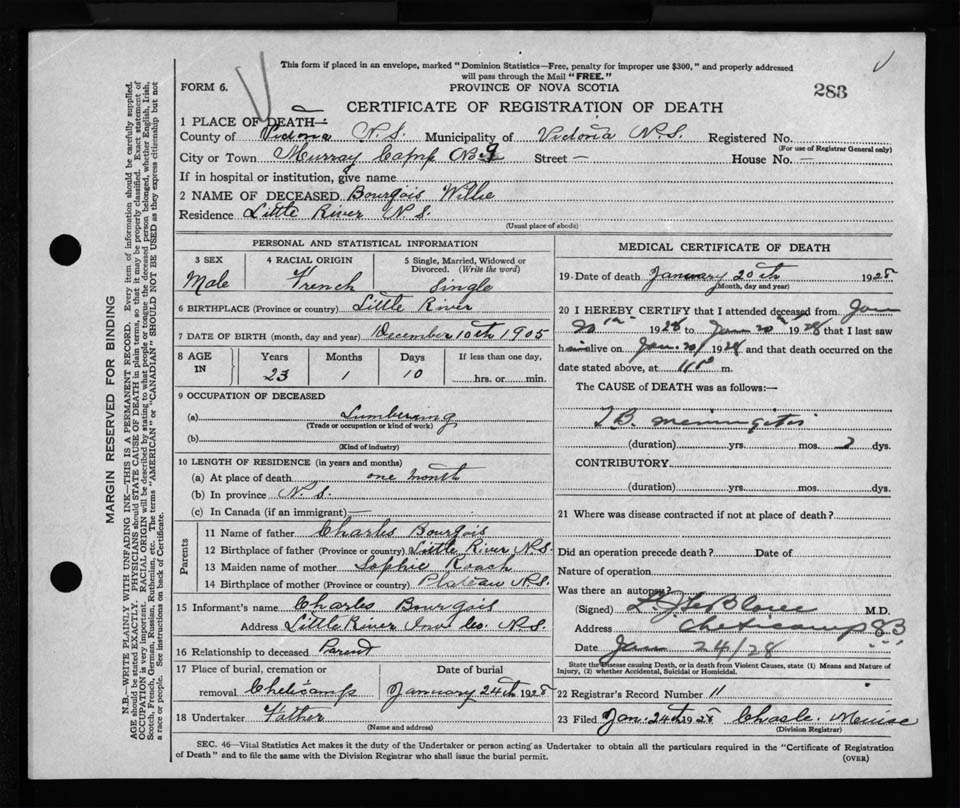 This form if placed in an envelope, marked "Dominion Statistics—Free, penalty for improper use $300," and properly addressed
will pass through the Mail "FREE."
FORM 6.
PROVINCE OF NOVA SCOTIA
283
CERTIFICATE OF REGISTRATION OF DEATH
1 PLACE OF DEATH—
County of Victoria N.S. Municipality of Victoria N.S. Registered No.
(For use of Registrar General only)
City or Town Murray Camp Street — House No. —
If in hospital or institution, give name
2 NAME OF DECEASED Bourgois Willie
Residence Little River N.S.
(Usual place of abode)
PERSONAL AND STATISTICAL INFORMATION
3 SEX
Male
4 RACIAL ORIGIN
French
5 Single, Married, Widowed or
Divorced. (Write the word)
Single
6 BIRTHPLACE (Province or country) Little River
7 DATE OF BIRTH (month, day and year) December 10th 1905
8 AGE
IN
Years
23
Months
1
Days
10
If less than one day,
hrs. or min.
9 OCCUPATION OF DECEASED
(a) Lumbering
(Trade or occupation or kind of work)
(b)
(Kind of industry)
10 LENGTH OF RESIDENCE (in years and months)
(a) At place of death one month
(b) In province N.S.
(c) In Canada (if an immigrant) —
Parents
11 Name of father Charles Bourgois
12 Birthplace of father (Province or country) Little River N.S.
13 Maiden name of mother Sophie Roach
14 Birthplace of mother (Province or country) Plateau N.S.
15 Informant's name Charles Bourgois
Address Little River Inv. Co. N.S.
16 Relationship to deceased Parent
17 Place of burial, cremation or
removal Cheticamp
Date of burial
January 24th 1928
18 Undertaker Father
(Name and address)
MEDICAL CERTIFICATE OF DEATH
19 Date of death January 20th 1928
(Month, day and year)
20 I HEREBY CERTIFY that I attended deceased from Jan
20th 1928 to Jan 20th 1928 that I last saw
him alive on Jan. 20 1928 and that death occurred on the
date stated above, at m.
The CAUSE of DEATH was as follows:—
T.B. meningitis
(duration) yrs. mos. dys.
CONTRIBUTORY
(duration) yrs. mos. dys.
21 Where was disease contracted if not at place of death?
Did an operation precede death? Date of
Nature of operation
Was there an autopsy?
(Signed) L. J. LeBlanc M.D.
Address Cheticamp CB
Date Jan 24/28
State the Disease causing Death, or in death from Violent Causes, state (1) Means and Nature of
Injury, (2) whether Accidental, Suicidal or Homicidal.
22 Registrar's Record Number 11
23 Filed Jan. 24th 1928
(Division Registrar)
SEC. 46—Vital Statistics Act makes it the duty of the Undertaker or person acting as Undertaker to obtain all the particulars required in the "Certificate of Registration
of Death" and to file the same with the Division Registrar who shall issue the burial permit.
(OVER)
MARGIN RESERVED FOR BINDING
N.B.—WRITE PLAINLY WITH UNFADING INK—THIS IS A PERMANENT RECORD. Every item of information should be carefully supplied.
AGE should be stated EXACTLY. PHYSICIANS should STATE CAUSE OF DEATH in plain terms, so that it may be properly classified. Exact statement of
OCCUPATION is very important. RACIAL ORIGIN will be described by stating to what people or tongue the deceased person belonged, whether English, Irish,
Scotch, French, German, Russian, Ruthenian, etc. The terms "AMERICAN" or "CANADIAN" SHOULD NOT BE USED as they express citizenship but not
a race or people. See instructions on back of Certificate.